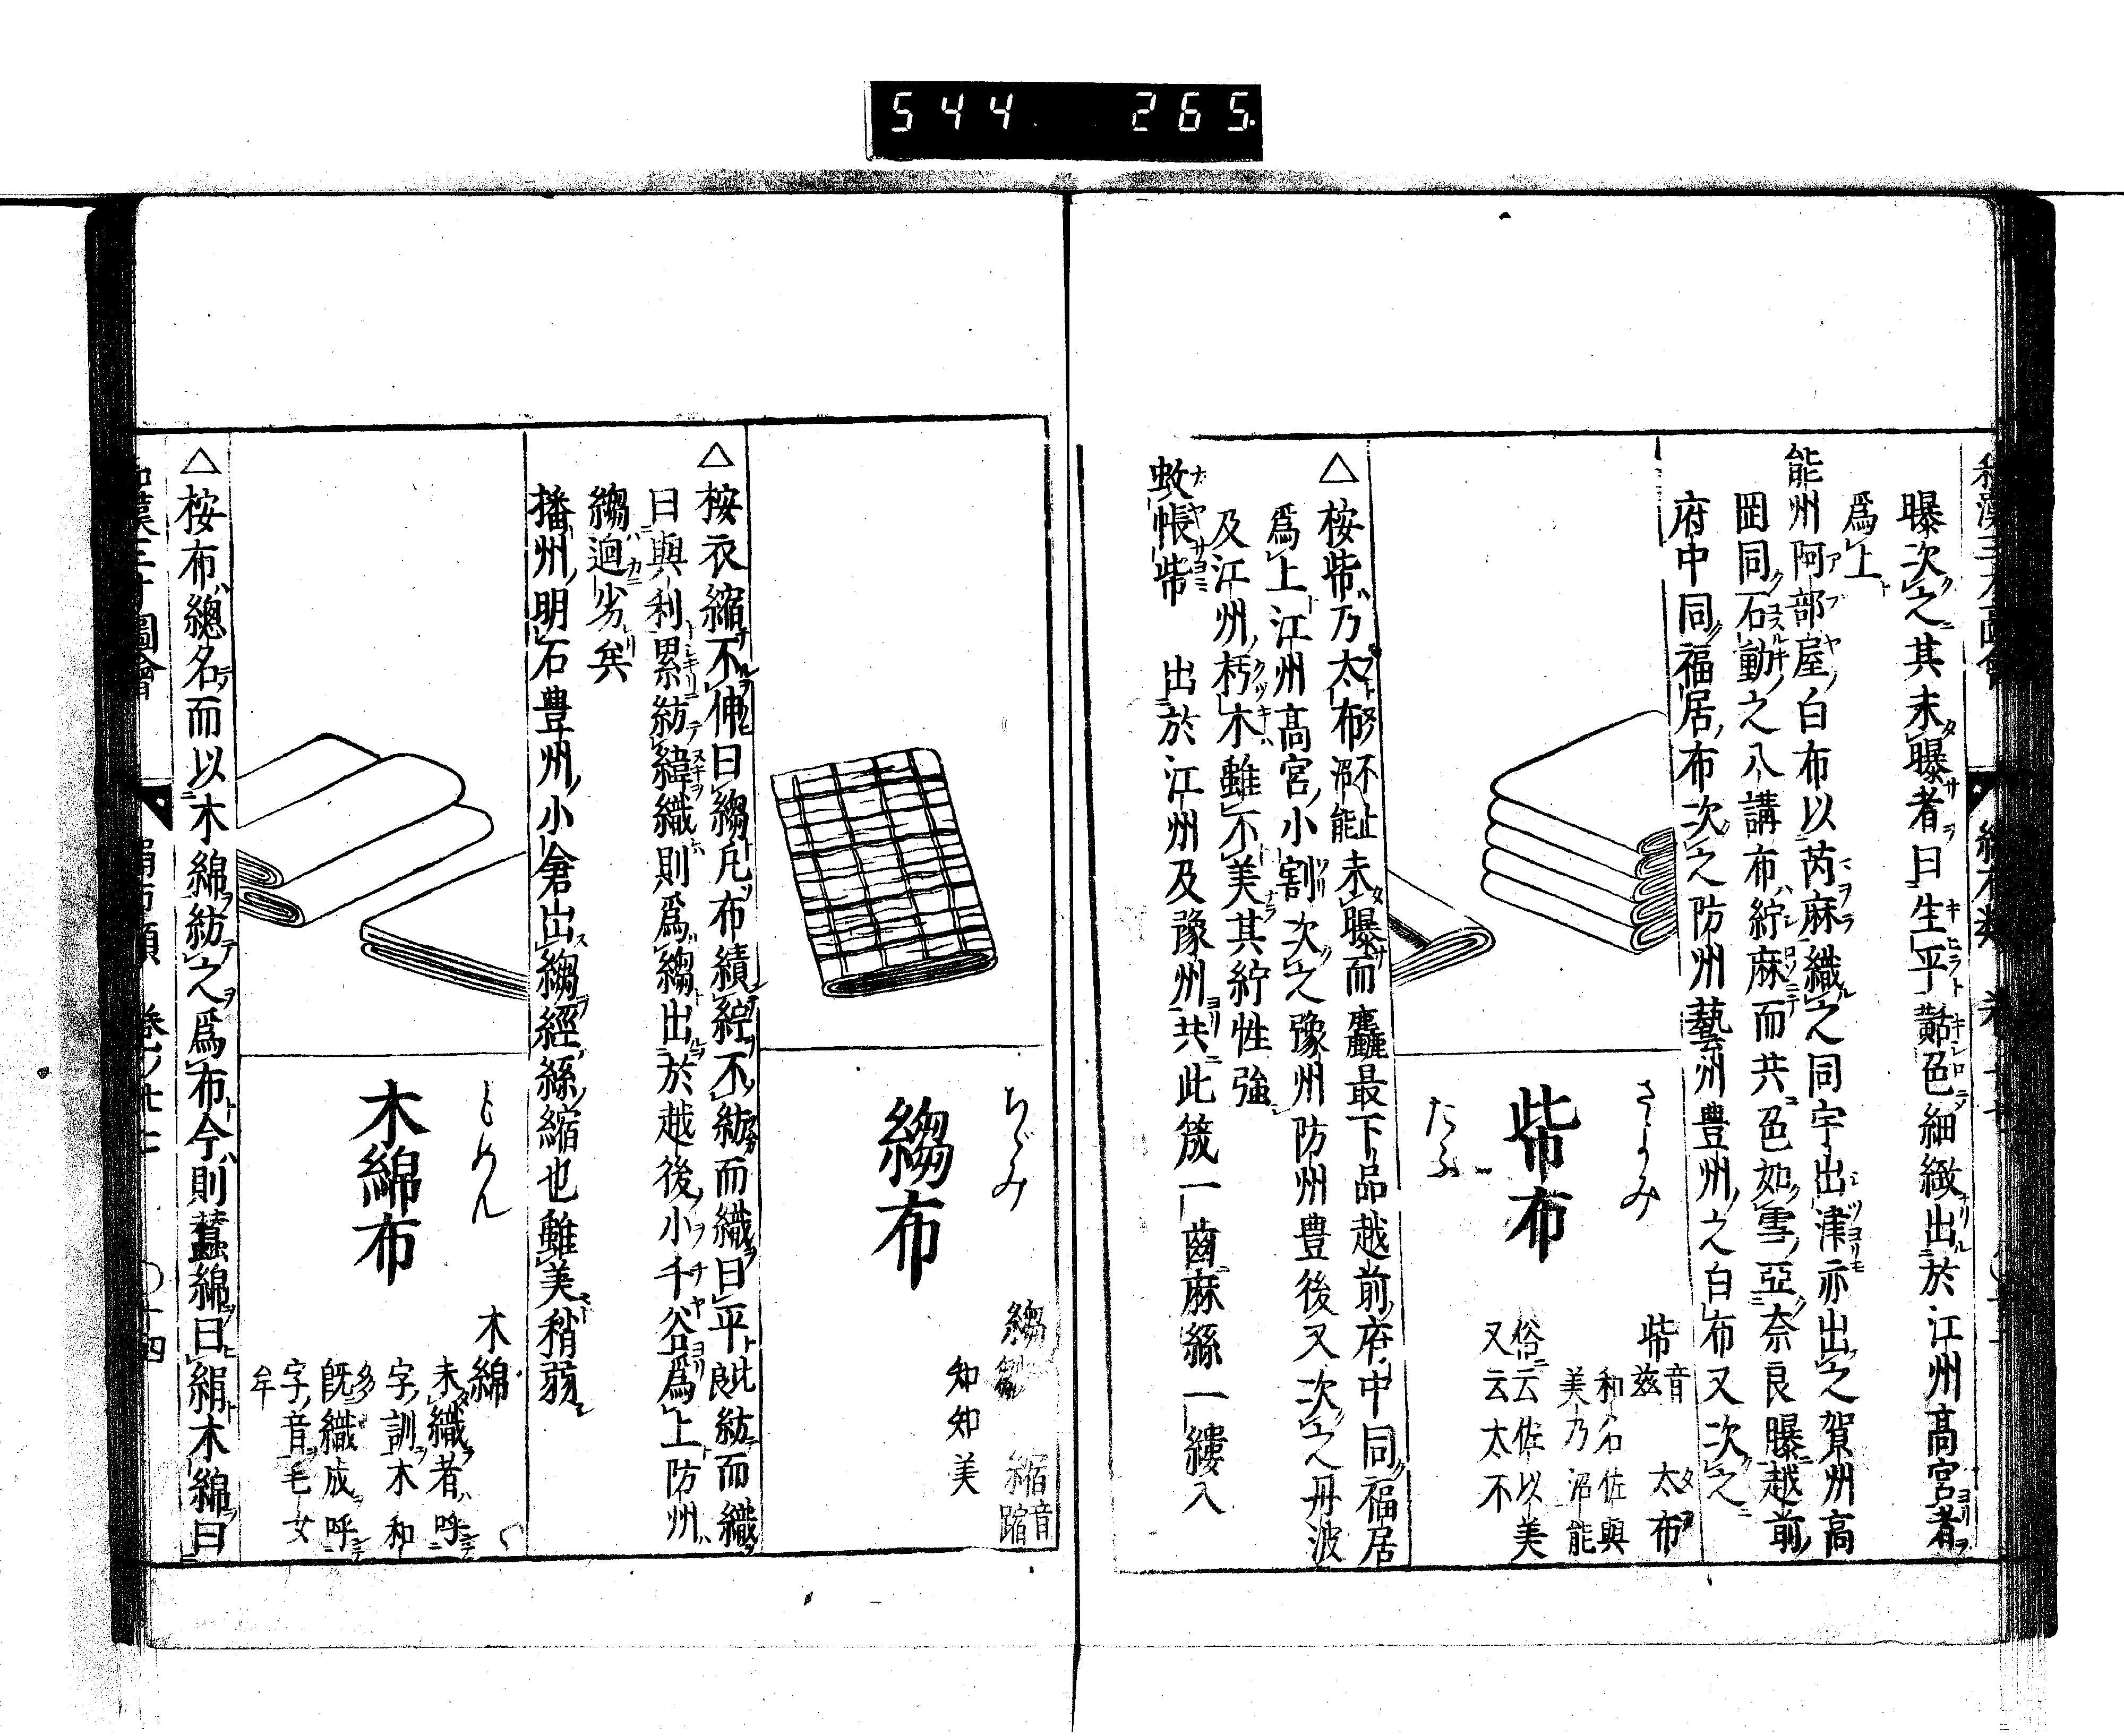 544 265
曝次之其未曝者曰生平黈色細緻出於江州髙宮者
爲上
能州阿部屋白布以苪麻織之同宇出津亦出之賀州高
岡同石動之八講布紵麻而共色如雪亞奈良曝越前
府中同福居布次之防州藝州豊州之白布又次之
さよみ
たふ
紫布
紫 音兹
太布
和名佐與
美乃沼能
俗云佐以美
又云太不
△桉紫乃太布 不止沼能 未曝而麤最下品越前府中同福居
爲上江州髙宮小割次之豫州防州豊後又次之丹波
及江州朽木雖不美其紵性強
蚊帳紫 出於江州及豫州共此筬一齒麻絲一縷入
ちゞみ
縐布
縐
縮 音蹜
知知美
△桉衣縮不伸曰縐凡布績綜不紡而織曰平 此紡而織
曰與利累紡緯織則爲縐出於越後小千谷爲上防州
縐迥劣矣
播州明石豊州小倉出縐經絲縮也雖美稍弱
もめん
木綿布
木綿
未織者呼
字訓木和
多
既織成呼
字音毛女
牟
△桉布總名而以木綿紡之爲布今則蠶綿曰絹木綿曰